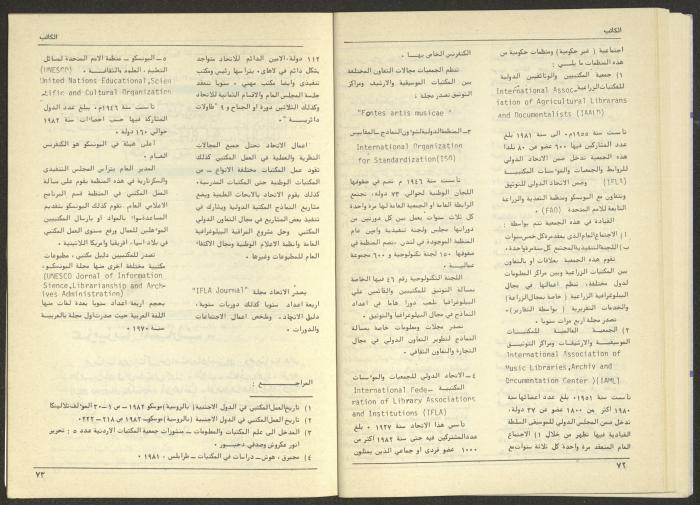 الكاتب
اجتماعية ( غير حكومية) ومنظمات حكومية من
هذه المنظمات ما يلــي :
١) جمعية المكتبيين والوثائقيين الدولية
للمكتبات الزراعية
International Assoc.
iation of Agricultural Librarans
and Documentalists (IAALD)
تأسست سنة ١٩٥٥م، الى سنة ١٩٨١ بلغ
عدد المشتركين فيها ٦٠٠ عضو من ٨٠ بلدا
هذه الجمعية تدخل ضمن الاتحاد الدولي
للروابط والجمعيات والمؤسسات المكتبية
(IFLA) وضمن الاتحاد الدولي للتوثيق
وتتعاون مع اليونسكو ومنظمة التغذية والزراعة
التابعة للامم المتحدة (FAO) .
القيادة في هذه الجمعية تتم بواسطة :
أ) الاجتماع العام الذي يعقد مرة كل خمس سنوات
ب) اللجنة التنفيذية المجتمع كل سنة مرة واحدة .
تقوم هذه الجمعية بعلاقات او بالتعاون
بين المكتبات الزراعية وبين مراكز المعلومات
لدول مختلفة، تنظم اعمالها في مجال
البيلوغرافيا الزراعية ( خاصة بمجال الزراعة)
والخدمات التقريرية ( بواسطة التقارير).
تصدر مجلة اربع مرات سنويا .
٢) الجمعية العالمية للمكتبــات
الموسيقية والارشيفات ومراكز التوثيــق
International Association of
Music Libraries,Archiv and
Documentation Center )(IAML)
تأست سنة ١٩٥١، بلغ عدد اعضائها سنة
١٩٨٠ اكثر من ١٨٠٠ عضو من ٣٧ دولة،
تدخل ضمن المجلس الدولي للموسيقى السلطة
القيادية فيها تظهر من خلال ١) الاجتماع
العام المنعقد مرة واحدة كل ثلاثة سنوات مع
الكنفرنس الخاص بهــا .
تنظم الجمعيات مجالات التعاون المختلفة
بين المكتبات الموسيقية والارشيف ومراكز
التوثيق تصدر مجلة :
"Fontes artis musicae "
٣- المنظمة الدولية لشؤون النماذج والمقاييس
International Organization
for Standardization(ISO)
تأسست سنة ١٩٤٦ م تضم في صفوفها
اللجان الوطنية لحوالي ٧٣ دولة، تجتمع
الرابطة العامة او الجمعية العامة لها مرة واحدة
كل ثلاث سنوات يعمل بين كل دورتين من
دوراتها مجلس ولجنة تنفيذية وامين عام
المنظمة الموجودة في لندن .تضم المنظمة في
صفوفها ١٥٠ لجنة تكنولوجية و ٦٠٠ مجموعة
عماليــة .
اللجنة التكنولوجية رقم ٤٦ فيها الخاصة
بمسألة التوثيق للمكتبيين والقائمين على
البيلوغرافيا تلعب دورا هاما في اعداد
النماذج في مجال البيلوغرافيا والتوثيق .
تصدر مجلات ومعلومات خاصة بمسألة
النماذج لتطوير التعاون الدولي في مجال
التجارة والتعاون الثقافي .
٤ـ الاتحاد الدولي للجمعيات والمؤسسات
المكتبية – International Fede
ration of Library Associations
and Institutions (IFLA)
تأسس هذا الاتحاد سنة ١٩٢٧ ، بلغ
عدد المشتركين فيه حتى سنة ١٩٨٢ اكثر من
١٠٠٠ عضو فردي او جماعي الذين يمثلون
٧٢
الكاتب
١١٢ دولة.الامين الدائم للاتحاد متواجد
بشكل دائم في لاهاي، يترأسها رئيس ومكتب
تنفيذي وايضا مكتب مهني . سنويا تنعقد
جلسة المجلس العام والاقسام الثمانية للاتحاد
وكذلك الثلاثين دورة او الجناح و ٩ "طاولات
دائريــة " .
اعمال الاتحاد تحتل جميع المجالات
النظرية والعملية في العمل المكتبي كذلك
تقود عمل المكتبات مختلفة الانواع ـ من
المكتبات الوطنية حتى المكتبات المدرسية،
كذلك يقوم الاتحاد بالابحاث العلمية ويضع
مشاريع النماذج المكتبية الدولية ويشارك في
تنفيذ بعض المشاريع في مجال التعاون الدولي
المكتبي وحل مشروع المراقبة البيلوغرافية
العامة وانظمة الاعلام الوطنية ومجال الاكتفاء
العام للمطبوعات وغيرها .
يصدر الاتحاد مجلة "IFLA Journal"
اربعة اعداد سنويا كذلك دوريات سنوية،
دليل الاتحاد، وملخص اعمال الاجتماعات
والدورات .
٥ـ اليونسكو ـ منظمة الامم المتحدة لمسائل
التعليم ، العلوم والثقافــة . (UNESCO)
United Nations Educational,Scien
tific and Cultural Organization
تأسست سنة ١٩٤٦م، يبلغ عدد الدول
المشتركة فيها حسب احصاءات سنة ١٩٨٢
حوالي ١٦٠ دولة .
أعلى هيئة في اليونسكو هو الكنفرنس
العــام .
المدير العام يترأس المجلس التنفيذي
والسكرتارية في هذه المنظمة يقوم على مسألة
العمل المكتبي في المنظمة قسم البرنامج
الاعلامي العام. تقوم كذلك اليونسكو بتقديم
المساعدة سواء بالمواد او بارسال المكتبيين
المؤهلين للمجال ورفع مستوى العمل المكتبي
في بلاد آسيا، افريقيا وامريكا اللاتينية .
تصدر للمكتبيين دليل مكتبي، مطبوعات
مكتبية مختلفة اخرى منها مجلة اليونسكو.
(UNESCO Jornal of Information
Sience,Librarianship and Arch-
ives Administration)
بحجم اربعة اعداد سنويا بعدة لغات منها
اللغة العربية حيث صدرت اول مجلة بالعربية
سنة ١٩٧٠ .
المراجــــــع :
١) تاريخ العمل المكتبي في الدول الاجنبية (بالروسية) موسكو ١٩٨٢ ـ ص ١-٣٠ المؤلفة تلالينكا
٢) تاريخ العمل المكتبي في الدول الاجنبية (بالروسية) موسكو ١٩٨٢ـ ص ٢١٨ـ ٢٢٢.
٣) المدخل الى علم المكتبات والمعلومات ـ منشورات جمعية المكتبات الاردنية عدد ٥ : تحرير
انور عكروش وصدقي دحبــور .
٤) محيريق، هوش ـ دراسات في المكتبات ـ طرابلس ، ١٩٨١ .
٧٣